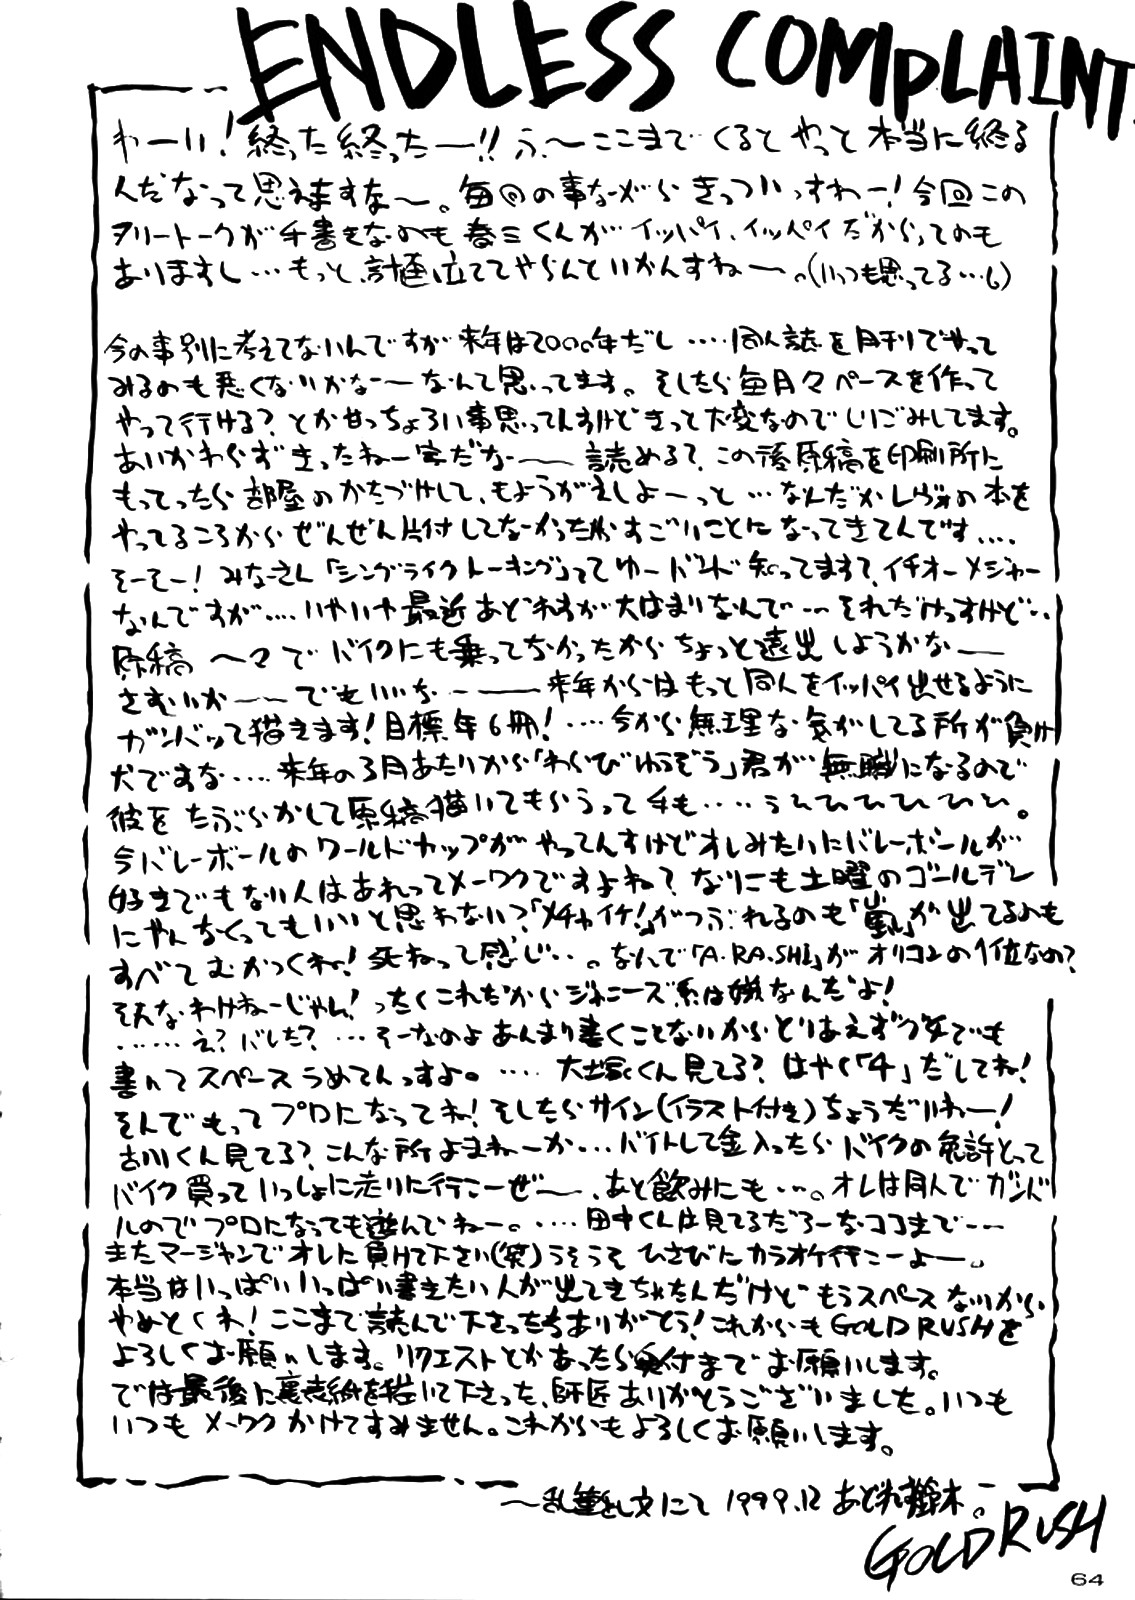 ENDLESS COMPLAINT.
わーい!終った終ったー!!ふ〜ここまでくるとやっと本当に終る
んだなって思えますな〜。毎回の事ながらきっついっすわー!今回この
フリートークが手書きなのも春三くんがイッパイ、イッパイだからってのも
ありますし…もっと、計画立ててやらんといかんすねー。(いつも思ってる…も)
今の事別に考えてないんですが来年は2000年だし……同人誌を月刊でやって
みるのも悪くないかなー〜なんて思ってます。そしたら毎月々ペースを作って
やって行ける?とか甘っちょろい事思ってんすけどきっと大変なのでしりごみしてます。
あいかわらずきったねー字だなー 読める?この後原稿を印刷所に
もってったら部屋のかたづけして、もようがえしよーっと…なんだかレヴォの本を
やってるころからぜんぜん片付してなかったからすごいことになってきてんです….
そーそー!みなーさん「シングライクトーキング」ってゆーバンド知ってます?イチオーメジャー
なんですが….いやいや最近あどれすが大はまりなんで…それだけっすけど…
原稿〜々でバイクにも乗ってなかったからちょっと遠出しようかなー
さむいかー〜でもいいなー 来年からはもっと同人をイッパイ出せるように
ガンバって描きます!目標年6冊!….今から無理な気がしてる所が負け
犬ですな….来年の3月あたりから「わらびゆうぞう」君が無職になるので
彼をたぶらかして原稿描いてもらうって手も….うひひひひひひ。
今バレーボールのワールドカップがやってんすけどオレみたいにバレーボールが
好きでもない人はあれってメーワクですよね?なりにも土曜のゴールデン
にやんなくってもいいと思わない?「メチャイケ!」がつぶれるのも「嵐」が出てるのも
すべてむかつくね!死ねって感じ…。なんで「A・RA・SHI」がオリコンの1位なの?
そんなわけねーじゃん!ったくこれだからジャニーズ系は嫌なんだよ!
……え?バレた?…そーなのよあんまり書くことないからとりあえずグチでも
書いてスペースうめてんっすよ。….大塚くん見てる?はやく「4」だしてね!
そんでもってプロになってね!そしたらサイン(イラスト付き)ちょうだいねー!
古川くん見てる?こんな所よまねーか…バイトして金入ったらバイクの免許とって
バイク買っていっしょに走りに行こーぜー、あと飲みにも…。オレは同人でガンバ
ルのでプロになっても遊んでねー。….田中くんは見てるだろーなココまで…
またマージャンでオレに負けて下さい(笑)うそうそひさびにカラオケ行こーよー。
本当はいっぱいいっぱい書きたい人が出てきちゃたんだけどもうスペースないから
やめとくね!ここまで読んで下さったちありがとう!これからもGOLD RUSHを
よろしくお願いします。リクエストとかあったら受付までお願いします。
では最後に裏表紙を描いて下さった、師匠ありがとうございました。いつも
いつもメーワクかけてすみません。これからもよろしくお願いします。
〜乱筆乱文にて 1999.12 あどれす鈴木。
GOLD RUSH
64